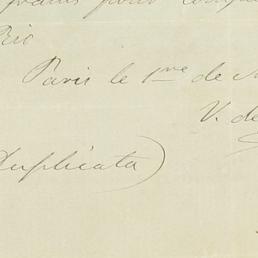 pour
Ric
Paris le 1re de
V. de
Duplicata)